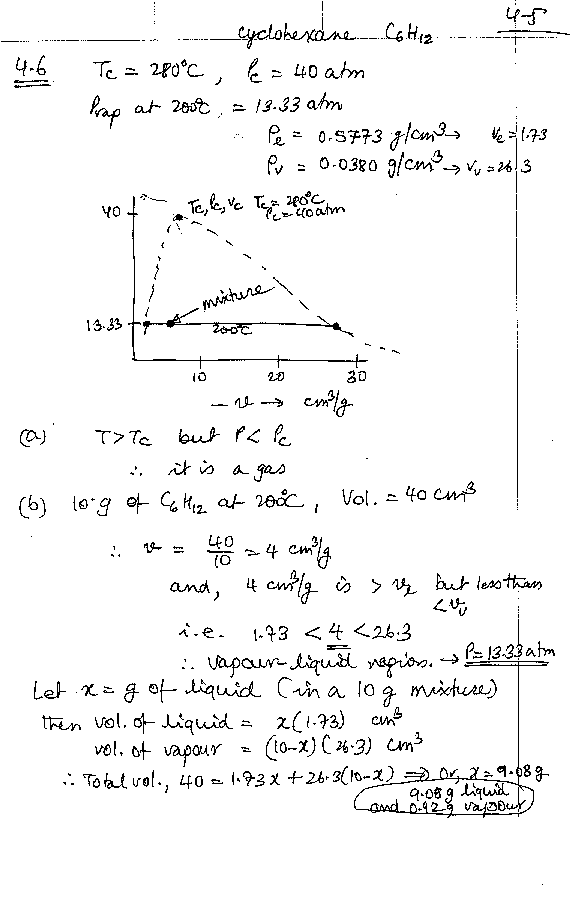 4-5
Cyclohexane C6H12
4.6 Tc = 280°C, Pc = 40 atm
Pvap at 200°C, = 13.33 atm
∴ ρe = 0.5773 g/cm³ → ve = 1.73
ρv = 0.0380 g/cm³ → vv = 26.3
40 Tc, Pc, vc Tc = 280°C
Pc = 40 atm
mixture
13.33 200°C
10 20 30
— v → cm³/g
(a) T>Tc but P< Pc
∴ it is a gas
(b) 10-g of C6H12 at 200°C, Vol. = 40 cm³
∴ v = 40/10 = 4 cm³/g
and, 4 cm³/g is > ve but less than
< vv
i.e. 1.73 < 4 < 26.3
∴ vapour-liquid region. → P = 13.33 atm
Let x = g of liquid (in a 10 g mixture)
then vol. of liquid = x(1.73) cm³
vol. of vapour = (10-x)(26.3) cm³
∴ Total vol., 40 = 1.73x + 26.3(10-x) ⇒ Or, x = 9.08 g
9.08 g liquid
and 0.92 g vapour